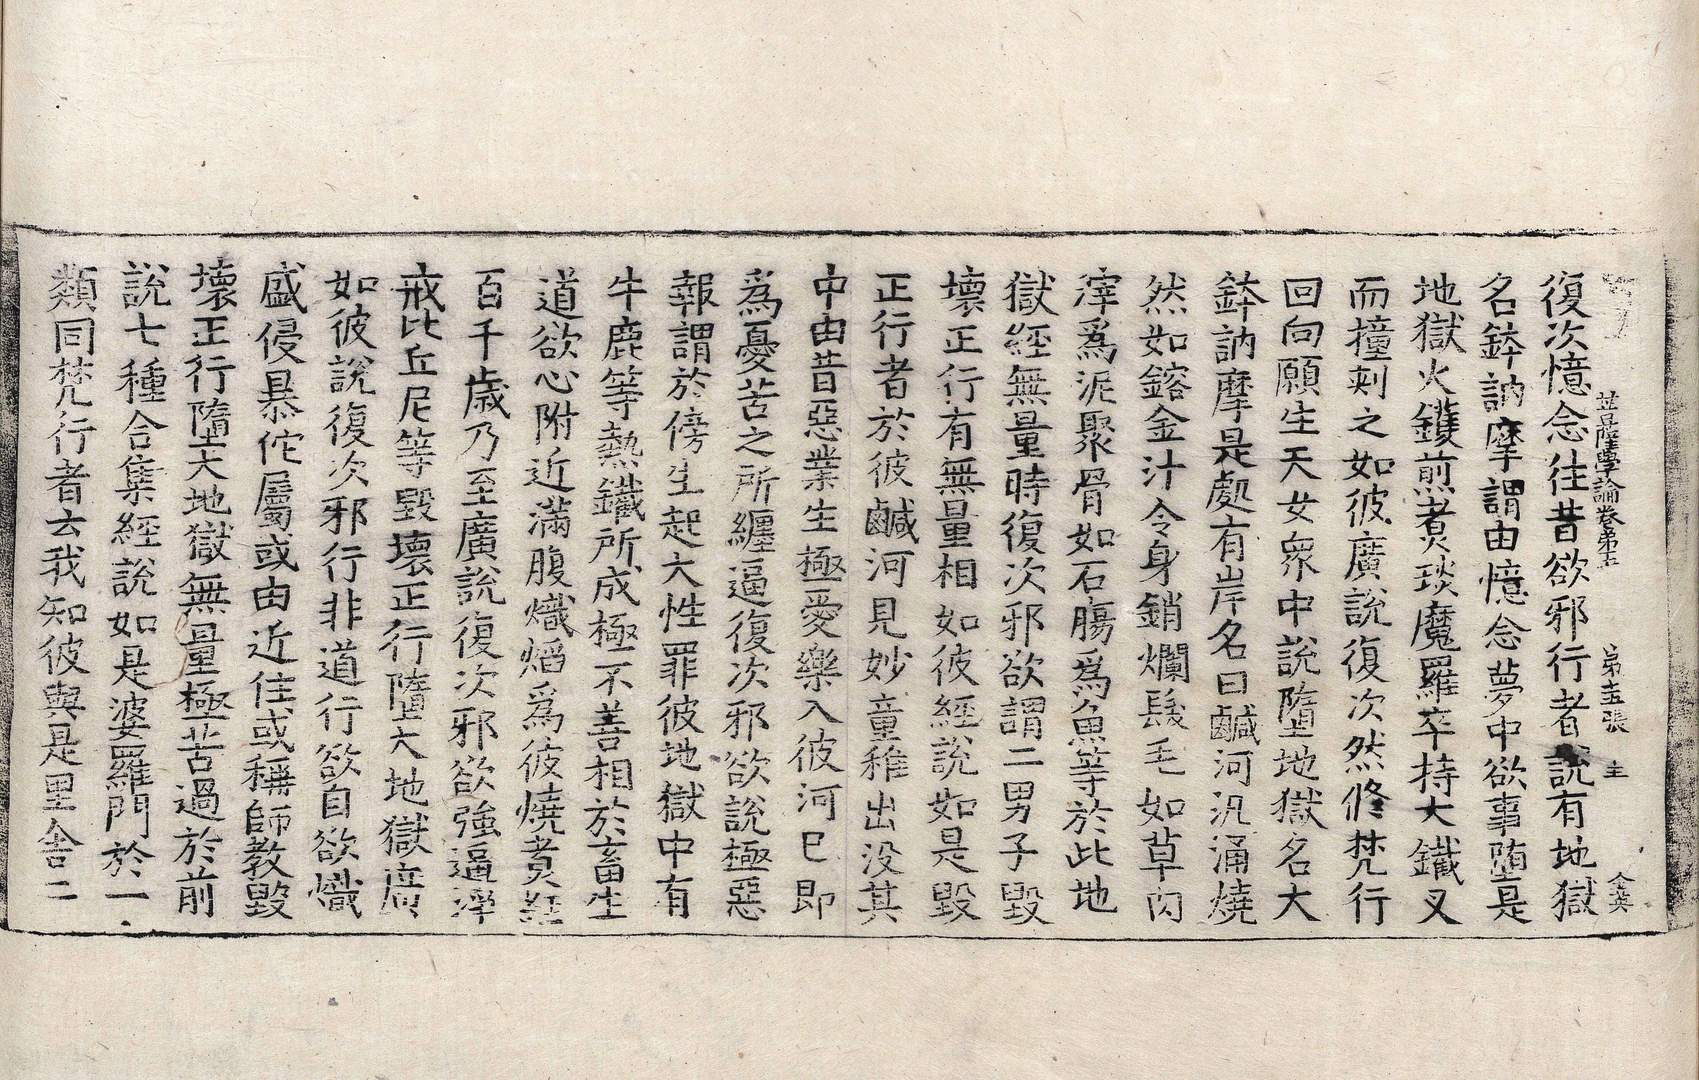 菩薩學論卷第五 第十五張 主
復次憶念往昔欲邪行者說有地獄
名鉢訥摩謂由憶念夢中欲事墮是
地獄火鑊煎煑琰魔羅卒持大鐵叉
而撞刺之如彼廣說復次然修梵行
回向願生天女衆中說墮地獄名大
鉢訥摩是處有岸名曰鹹河汎涌燒
然如鎔金汁令身銷爛髮毛如草肉
滓爲泥聚骨如石腸爲魚等於此地
獄經無量時復次邪欲謂二男子毀
壞正行有無量相如彼經說如是毀
正行者於彼鹹河見妙童稚出没其
中由昔惡業生極愛樂入彼河已即
爲憂苦之所纏逼復次邪欲說極惡
報謂於傍生起大性罪彼地獄中有
牛鹿等熱鐵所成極不善相於畜生
道欲心附近滿腹熾熖爲彼燒煑經
百千歳乃至廣說復次邪欲強逼淨
戒比丘尼等毀壞正行墮大地獄廣
如彼說復次邪行非道行欲自欲熾
盛侵暴佗屬或由近住或稱師教毀
壞正行墮大地獄無量極苦過於前
說七種合集經說如是婆羅門於一
類同梵行者去我知彼與是里舍二